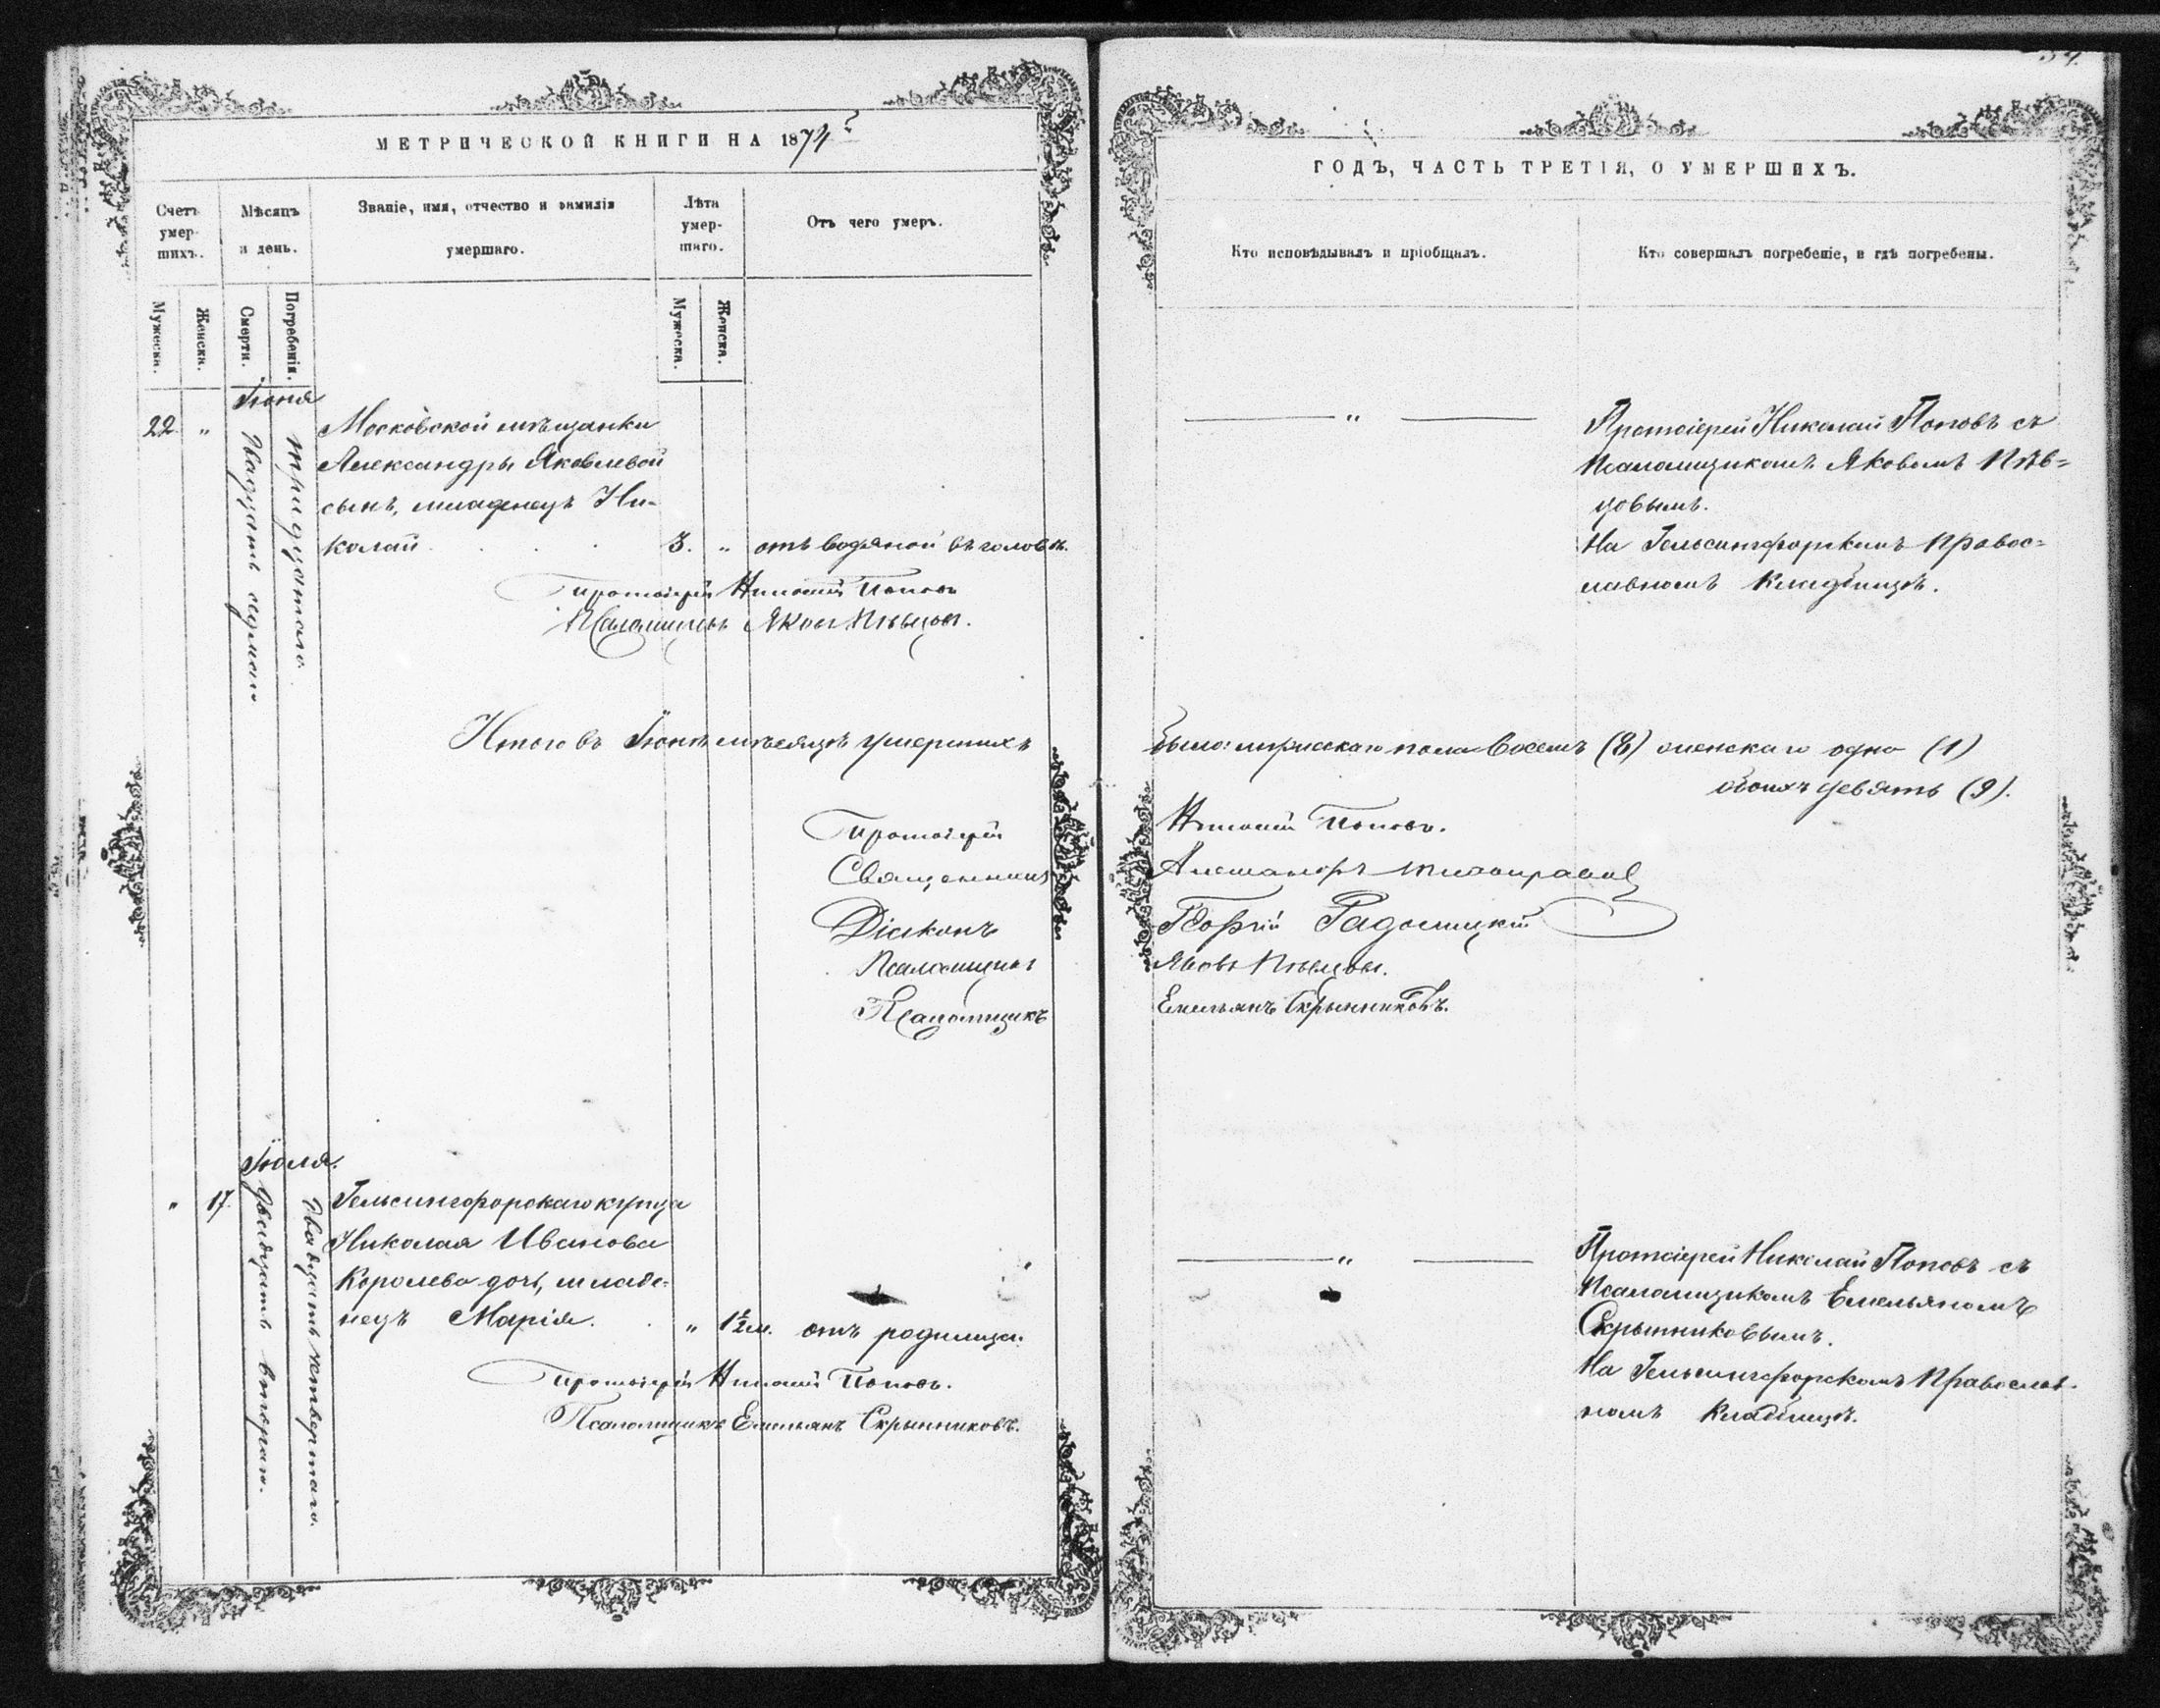 МЕТРИЧЕСКОЙ КНИГИ НА 1874
Счетъ умер-шихъ.
Мѣсяцъ и день.
Званіе, имя, отчество и фамилія умершаго.
Лѣта умер-шаго.
Отъ чего умеръ.
Мужеска.
Женска.
Смерти.
Погребенія.
Мужеска.
Женска.
Іюня
22. „
Двадцать седьмаго
Тридцатаго.
Московской мѣщанки
Александры Яковлевой
сынъ, младенецъ Ни-
колай
3. „ отъ водяной въ головѣ.
Протоіерей Николай Поповъ
Псаломщикъ Яковъ Пѣвцовъ.
Итого въ Іюнѣ мѣсяцѣ умершихъ
Протоіерей
Священникъ
Діаконъ
Псаломщикъ
Псаломщикъ
Іюля.
„ 17.
Двадцать втораго.
Двадцать четвертаго.
Гельсингфорскаго купца
Николая Иванова
Королева дочь, младе-
нецъ Марія.
„ 1½ м. отъ родимца.
Протоіерей Николай Поповъ.
Псаломщикъ Емельянъ Скрынниковъ.
ГОДЪ, ЧАСТЬ ТРЕТІЯ, О УМЕРШИХЪ.
Кто исповѣдывалъ и пріобщалъ.
Кто совершалъ погребеніе, и гдѣ погребены.
„
Протоіерей Николай Поповъ съ
Псаломщикомъ Яковомъ Пѣв=
цовымъ.
На Гельсингфорскомъ Правос=
лавномъ Кладбищѣ.
было: мужескаго пола восемь (8) женскаго одна (1)
обоихъ девять (9).
Николай Поповъ.
Александръ
Георгій
Яковъ Пѣвцовъ.
Емельянъ Скрынниковъ.
„
Протоіерей Николай Поповъ съ
Псаломщикомъ Емельяномъ
Скрынниковымъ.
На Гельсингфорскомъ Православ-
номъ Кладбищѣ.